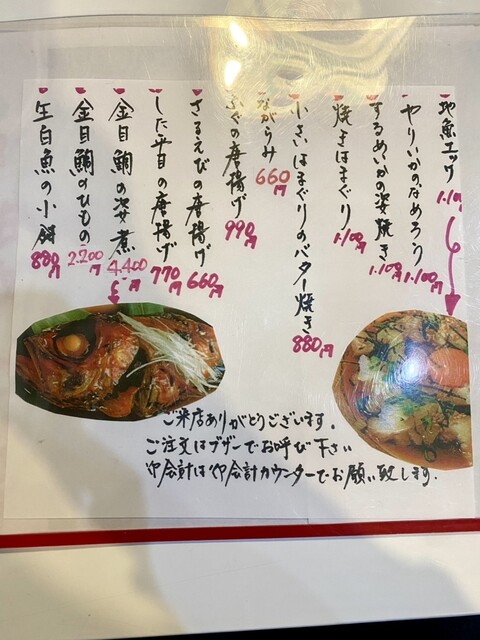 地魚ユッケ 1.100
やりいかのなめろう 1.100円
するめいかの姿焼き 1.100円
焼きはまぐり 1.100円
小さいはまぐりのバター焼き 880円
ながらみ 660円
ふぐの唐揚げ 990円
さるえびの唐揚げ 660円
した平目の唐揚げ 770円
金目鯛の姿煮 4.400円
金目鯛のひもの 2.200円
生白魚の小鉢 880円
ご来店ありがとうございます。
ご注文はブザーでお呼び下さい
お会計はお会計カウンターでお願い致します.